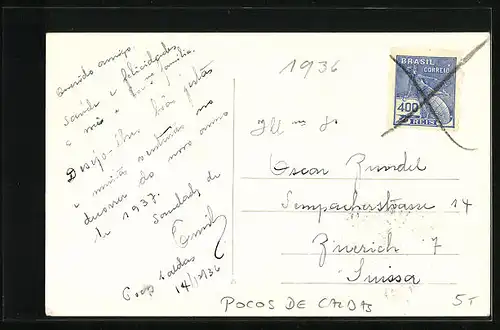 Querido amigo.
Saude e felicidades
a mia e boa familia.
Desejo-lhes bôas festas
e muitas venturas no
decorrer do novo anno
de 1937.
Saudads de
Poços Caldas
14/12/936
1936
BRASIL
CORREIO
400
REIS
Ill mo Sr
Oscar Rundel
Sempacherstrasse 14
Zuerich 7
Suissa
POCOS DE CALDAS
5-